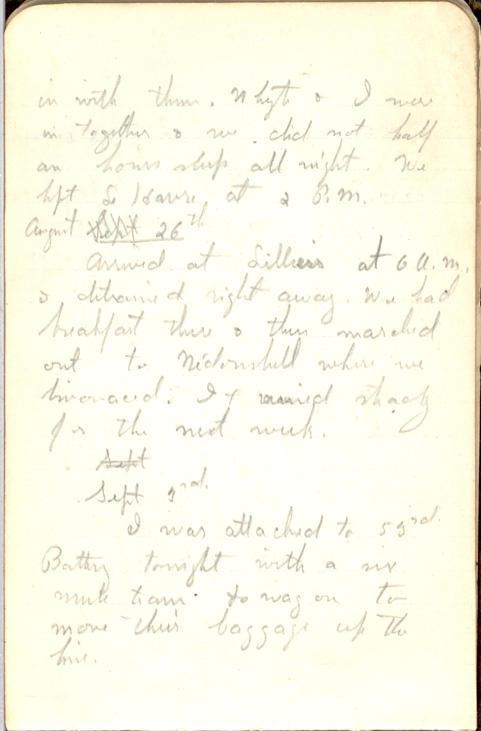 in with them. Whyte & I were
in together & we did not half
an hours sleep all night. We
left Le Havre at 2 P.M.
August Sept 26th
Arrived at Lilliers at 6 A.M.
& detrained right away. We had
breakfast there & then marched
out to Nedonshell where we
bivouaced. It rained steady
for the next week.
Sept
Sept 3rd.
I was attached to 53rd.
Battry tonight with a six
mule team & wagon to
move their baggage up the
line.